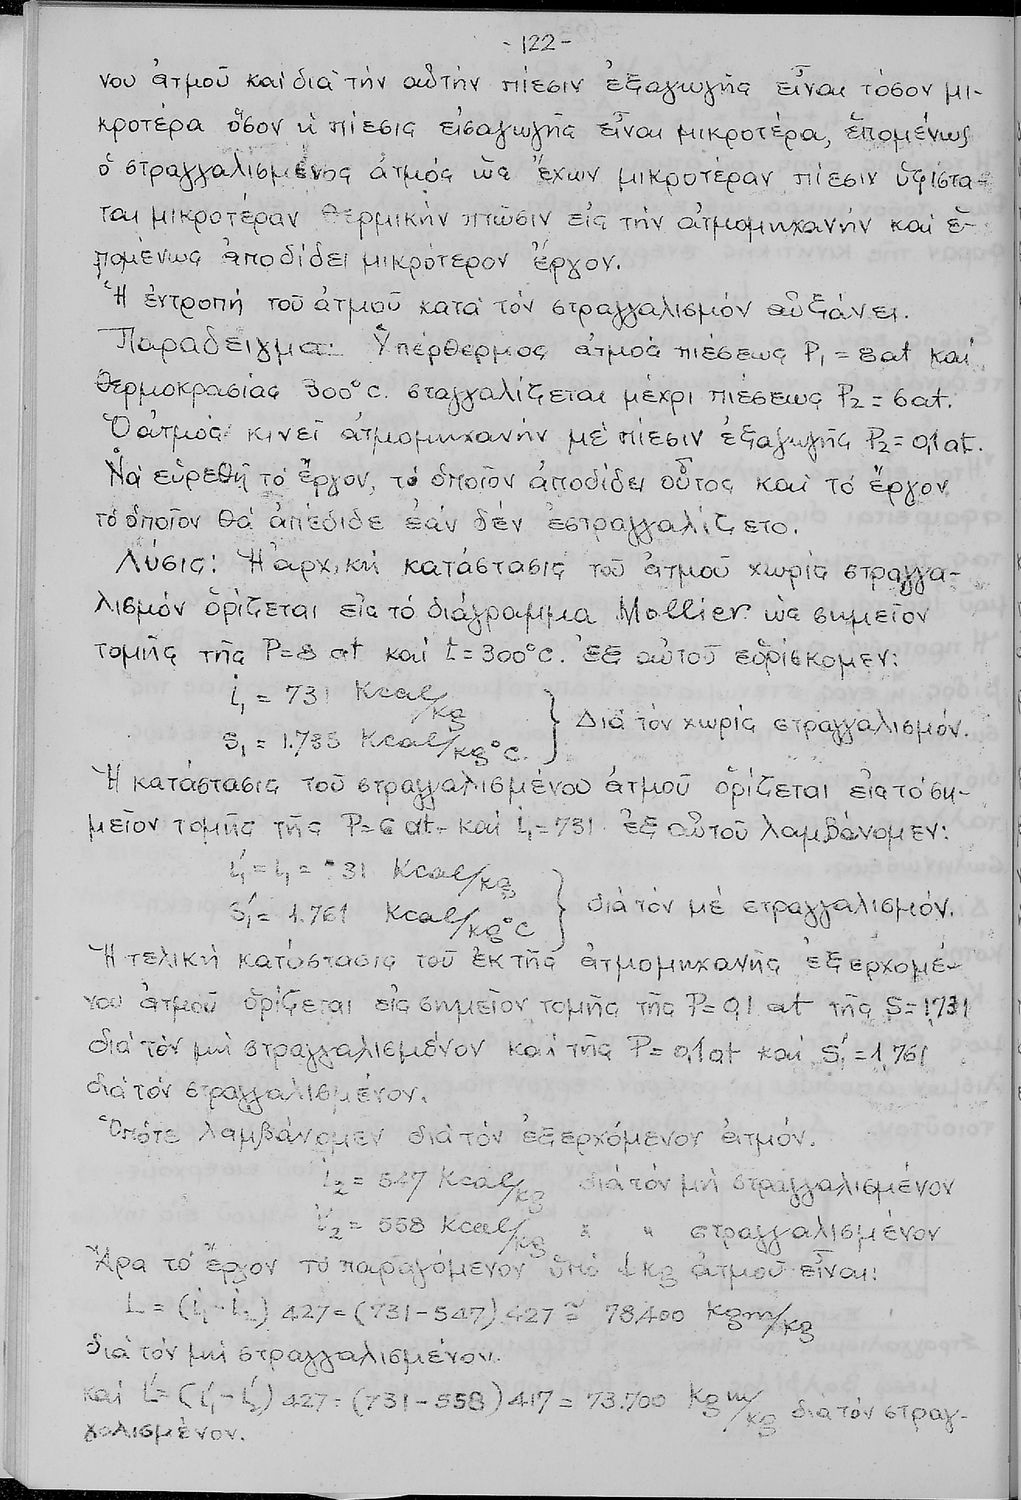 -122-
νου ἀτμοῦ καὶ διὰ τὴν αὐτὴν πίεσιν ἐξαγωγῆς εἶναι τόσον μι-
κροτέρα ὅσον ἡ πίεσις εἰσαγωγῆς εἶναι μικροτέρα, ἑπομένως
ὁ στραγγαλισμένος ἀτμός ὡς ἔχων μικροτέραν πίεσιν ὑφίστα-
ται μικροτέραν θερμικὴν πτῶσιν εἰς τὴν ἀτμομηχανήν καὶ ἑ-
πομένως ἀποδίδει μικρότερον ἔργον.
Ἡ ἐντροπή τοῦ ἀτμοῦ κατὰ τὸν στραγγαλισμόν αὐξάνει.
Παράδειγμα: Ὑπέρθερμος ἀτμός πιέσεως P₁ = 8at καὶ
θερμοκρασίας 300°C. σταγγαλίζεται μέχρι πιέσεως P₂ = 6at.
Ὁ ἀτμός κινεῖ ἀτμομηχανήν μὲ πίεσιν ἐξαγωγῆς P₂ = 0,1at.
Νὰ εὑρεθῆ τὸ ἔργον, τὸ ὁποῖον ἀποδίδει οὗτος καὶ τὸ ἔργον
τὸ ὁποῖον θὰ ἀπέδιδε ἐάν δέν ἐστραγγαλίζετο.
Λύσις: Ἡ ἀρχική κατάστασις τοῦ ἀτμοῦ χωρίς στραγγα-
λισμόν ὁρίζεται εἰς τὸ διάγραμμα Mollier ὡς σημεῖον
τομῆς τῆς P=8 at καὶ t=300°C. ἐξ αὐτοῦ εὑρίσκομεν:
i₁ = 731 Kcal/kg
s₁ = 1.735 Kcal/kg°C. } Διὰ τὸν χωρίς στραγγαλισμόν.
Ἡ κατάστασις τοῦ στραγγαλισμένου ἀτμοῦ ὁρίζεται εἰς τὸ ση-
μεῖον τομῆς τῆς P=6 at. καὶ i₁=731. ἐξ αὐτοῦ λαμβάνομεν:
i₁'= i₁ = 31 Kcal/kg
S₁'= 1.761 Kcal/kg°C } διὰ τὸν μὲ στραγγαλισμόν.
Ἡ τελική κατάστασις τοῦ ἐκ τῆς ἀτμομηχανῆς ἐξερχομέ-
νου ἀτμοῦ ὁρίζεται εἰς σημεῖον τομῆς τῆς P=0,1 at τῆς S=1,731
διὰ τὸν μὴ στραγγαλισμένον καὶ τῆς P=0,1at καὶ S₁'=1,761
διὰ τὸν στραγγαλισμένον.
Ὁπότε λαμβάνομεν διὰ τὸν ἐξερχόμενον ἀτμόν.
i₂ = 547 Kcal/kg διὰ τὸν μὴ στραγγαλισμένον
i₂' = 558 Kcal/kg " " στραγγαλισμένον
Ἄρα τὸ ἔργον τὸ παραγόμενον ὑπό 1 kg ἀτμοῦ εἶναι:
L = (i₁ - i₂) 427 = (731 - 547) 427 ≅ 78,400 kgm/kg
διὰ τὸν μὴ στραγγαλισμένον.
καὶ L'= (i₁' - i₂') 427 = (731 - 558) 417 = 73.700 Kgm/kg διὰ τὸν στραγ-
γαλισμένον.